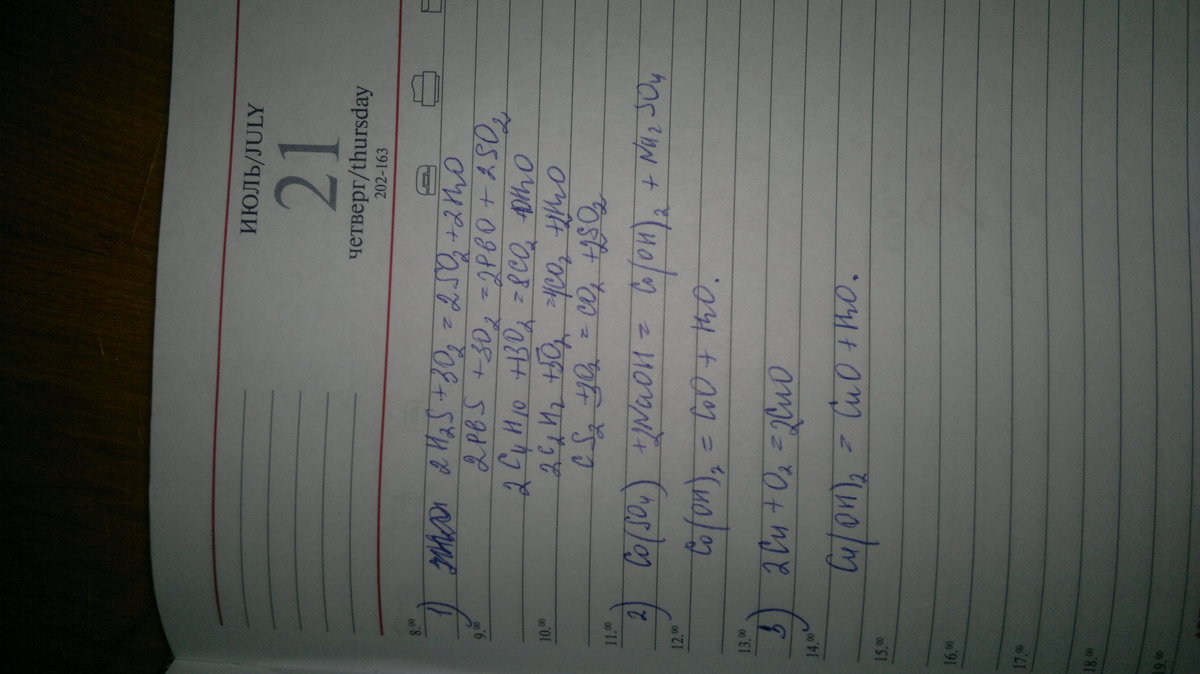 ИЮЛЬ/JULY
21
четверг/thursday
202-163
8.00
1) 2H2S + 3O2 = 2SO2 + 2H2O
9.00
2PBS + 3O2 = 2PBO + 2SO2
2C4H10 + 13O2 = 8CO2 10H2O
10.00
2C2H2 + 5O2 = 4CO2 + 2H2O
CS2 + 3O2 = CO2 + 2SO2
11.00
2) Co(SO4) + 2NaOH = Co(OH)2 + Na2SO4
12.00
Co(OH)2 = CoO + H2O.
13.00
3) 2Cu + O2 = 2CuO
14.00
Cu(OH)2 = CuO + H2O.
15.00
16.00
17.00
18.00
19.00